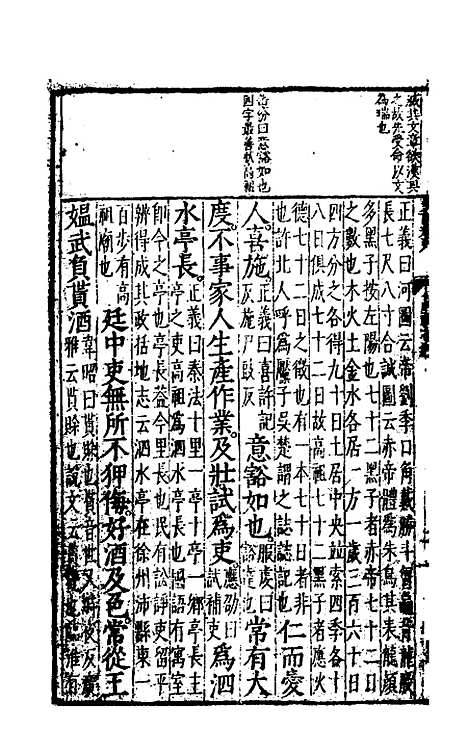 之故先受命以文
為瑞也
曰意豁如也
四字最善狀高祖
正義曰河圖云帝劉季口角戴勝斗胸龜背龍股
長七尺八寸合誠圖云赤帝體為朱鳥其表龍顏
多黑子按左陽也七十二黑子者赤帝七十二日
之數也木火土金水各居一方一歲三百六十日
四方分之各得九十日土居中央並索四季各十
八日俱成七十二日故高祖七十二黑子者應火
德七十二日之徵也有一本七十日者非
也許北人呼為黶子吳楚謂之誌誌記也
仁而愛
人喜施正義曰喜許記反施尸豉反意豁如也服虔曰豁達也常有大
度不事家人生產作業及壯試為吏應劭曰試補吏為泗
水亭長正義曰秦法十里一亭十亭一鄉亭長主
亭之吏高祖為泗水亭長也國語有寓室
即今之亭也亭長蓋今里長也民有訟諍吏留平
辨得成其政括地志云泗水亭在徐州沛縣東一
百步有高祖廟也廷中吏無所不狎侮好酒及色常從王
媼武負貰酒韋昭曰貰賒也貰音世又時夜反廣
雅云貰賒也說文云貰貸也臨淮有